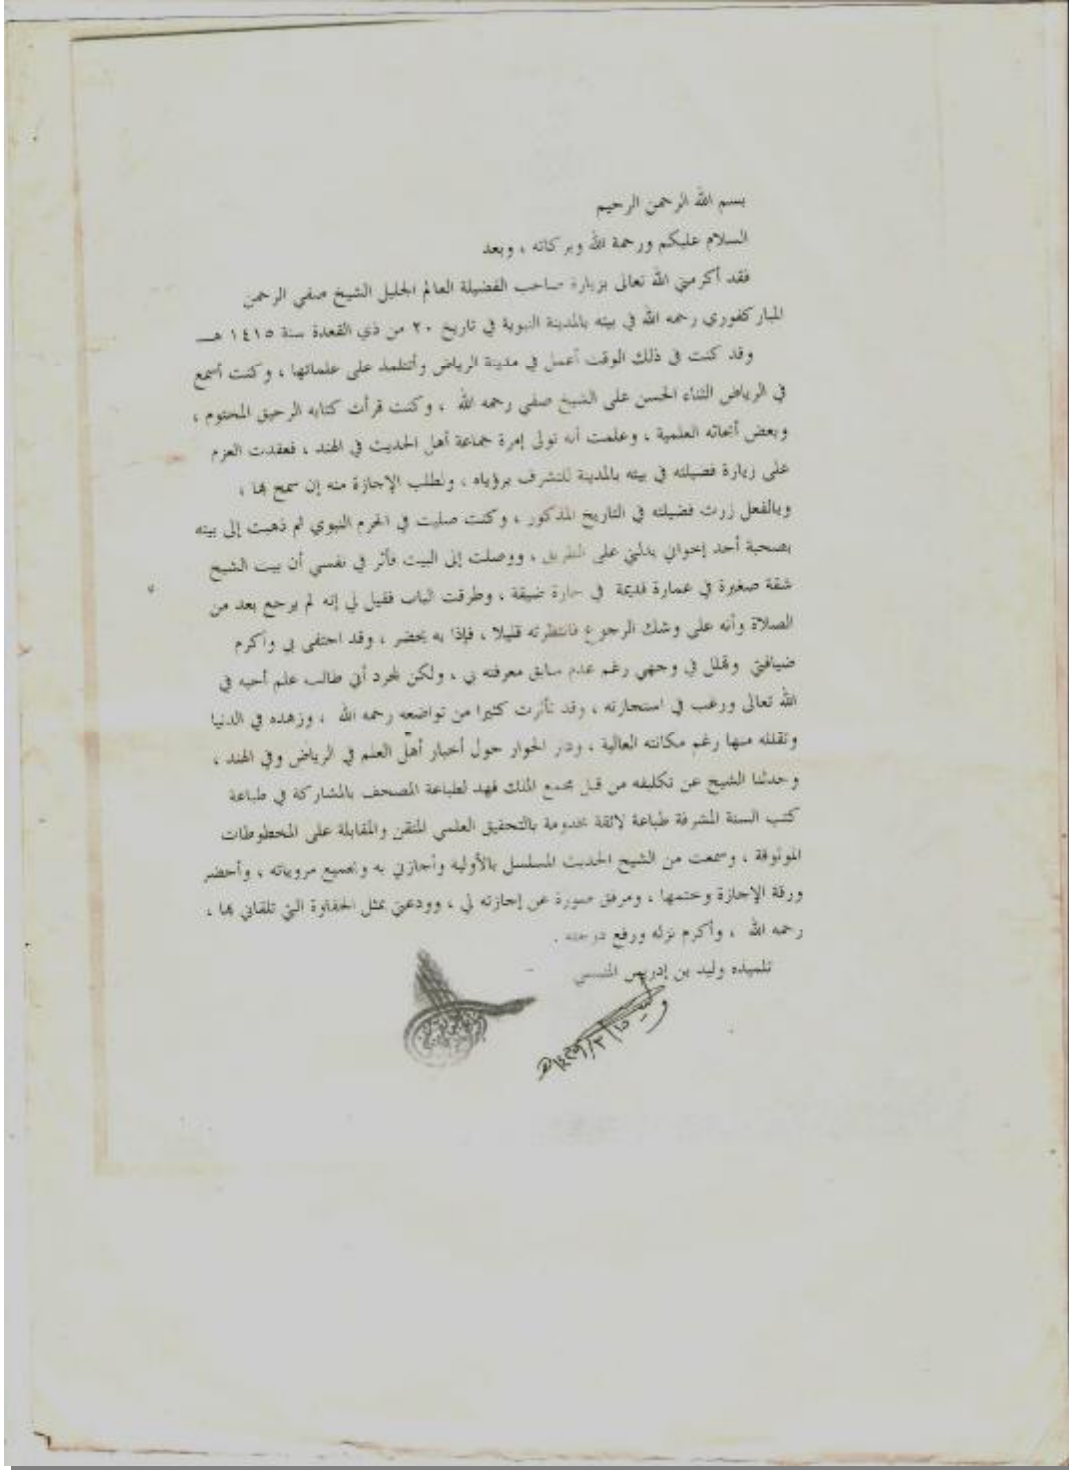 بسم الله الرحمن الرحيم
السلام عليكم ورحمة الله وبركاته ، وبعد
فقد أكرمني الله تعالى بزيارة صاحب الفضيلة العالم الجليل الشيخ صفي الرحمن
المباركفوري رحمه الله في بيته بالمدينة النبوية في تاريخ ٢٠ من ذي القعدة سنة ١٤١٥ هـــ
وقد كنت في ذلك الوقت أعمل في مدينة الرياض وأتتلمذ على علمائها ، وكنت أسمع
في الرياض الثناء الحسن على الشيخ صفي رحمه الله ، وكنت قرأت كتابه الرحيق المختوم ،
وبعض أبحاثه العلمية ، وعلمت أنه تولى إمرة جماعة أهل الحديث في الهند ، فعقدت العزم
على زيارة فضيلته في بيته بالمدينة للتشرف برؤياه ، ولطلب الإجازة منه إن سمح بها ،
وبالفعل زرت فضيلته في التاريخ المذكور ، وكنت صليت في الحرم النبوي ثم ذهبت إلى بيته
بصحبة أحد إخواني يدلني على الطريق ، ووصلت إلى البيت فأثر في نفسي أن بيت الشيخ
شقة صغيرة في عمارة قديمة في حارة ضيقة ، وطرقت الباب فقيل لي إنه لم يرجع بعد من
الصلاة وأنه على وشك الرجوع فانتظرته قليلا ، فإذا به يحضر ، وقد احتفى بي وأكرم
ضيافتي وتهلل في وجهي رغم عدم سابق معرفته بي ، ولكن لمجرد أني طالب علم أحبه في
الله تعالى ورغب في استجازته ، وقد تأثرت كثيرا من تواضعه رحمه الله ، وزهده في الدنيا
وتقلله منها رغم مكانته العالية ، ودار الحوار حول أخبار أهل العلم في الرياض وفي الهند ،
وحدثنا الشيخ عن تكليفه من قبل مجمع الملك فهد لطباعة المصحف بالمشاركة في طباعة
كتب السنة المشرفة طباعة لائقة مخدومة بالتحقيق العلمي المتقن والمقابلة على المخطوطات
الموثوقة ، وسمعت من الشيخ الحديث المسلسل بالأولية وأجازني به وبجميع مروياته ، وأحضر
ورقة الإجازة وختمها ، ومرفق صورة عن إجازته لي ، وودعني بمثل الحفاوة التي تلقاني بها ،
رحمه الله ، وأكرم نزله ورفع درجته .
تلميذه وليد بن إدريس المنيسي